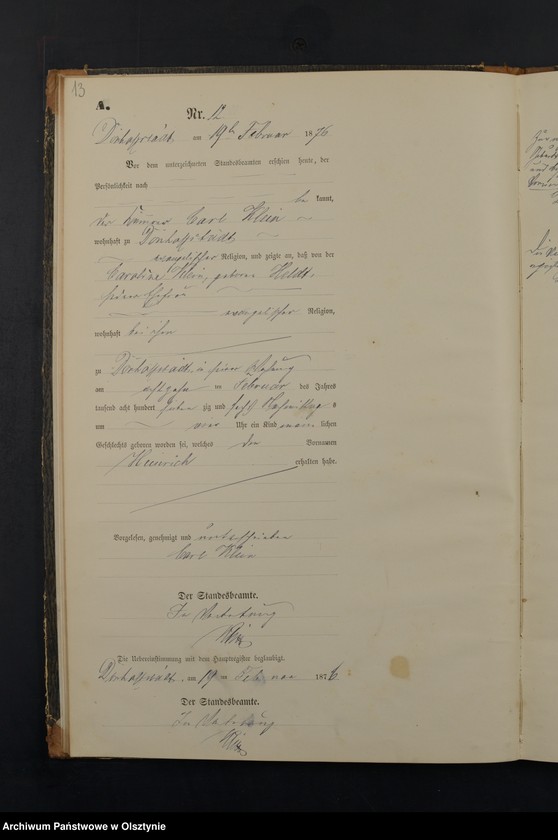 13
A.
Nr. 12.
am 19ten Februar 1876
Vor dem unterzeichneten Standesbeamten erschien heute, der
Persönlichkeit nach
be kannt,
der Carl Klein
wohnhaft zu
evangelischer Religion, und zeigte an, daß von der
Caroline Klein, geborene
seiner Ehefrau
evangelischer Religion,
wohnhaft bei ihm
zu in seiner Wohnung
am achtzehn ten Februar des Jahres
tausend acht hundert sieben zig und sechs Nachmittags
um vier Uhr ein Kind männ lichen
Geschlechts geboren worden sei, welches den Vornamen
Heinrich
erhalten habe.
Vorgelesen, genehmigt und unterschrieben
Carl Klein
Der Standesbeamte.
In Vertretung
Die Uebereinstimmung mit dem Hauptregister beglaubigt.
am 19 ten Februar 1876
Der Standesbeamte.
In Vertretung
Archiwum Państwowe w Olsztynie